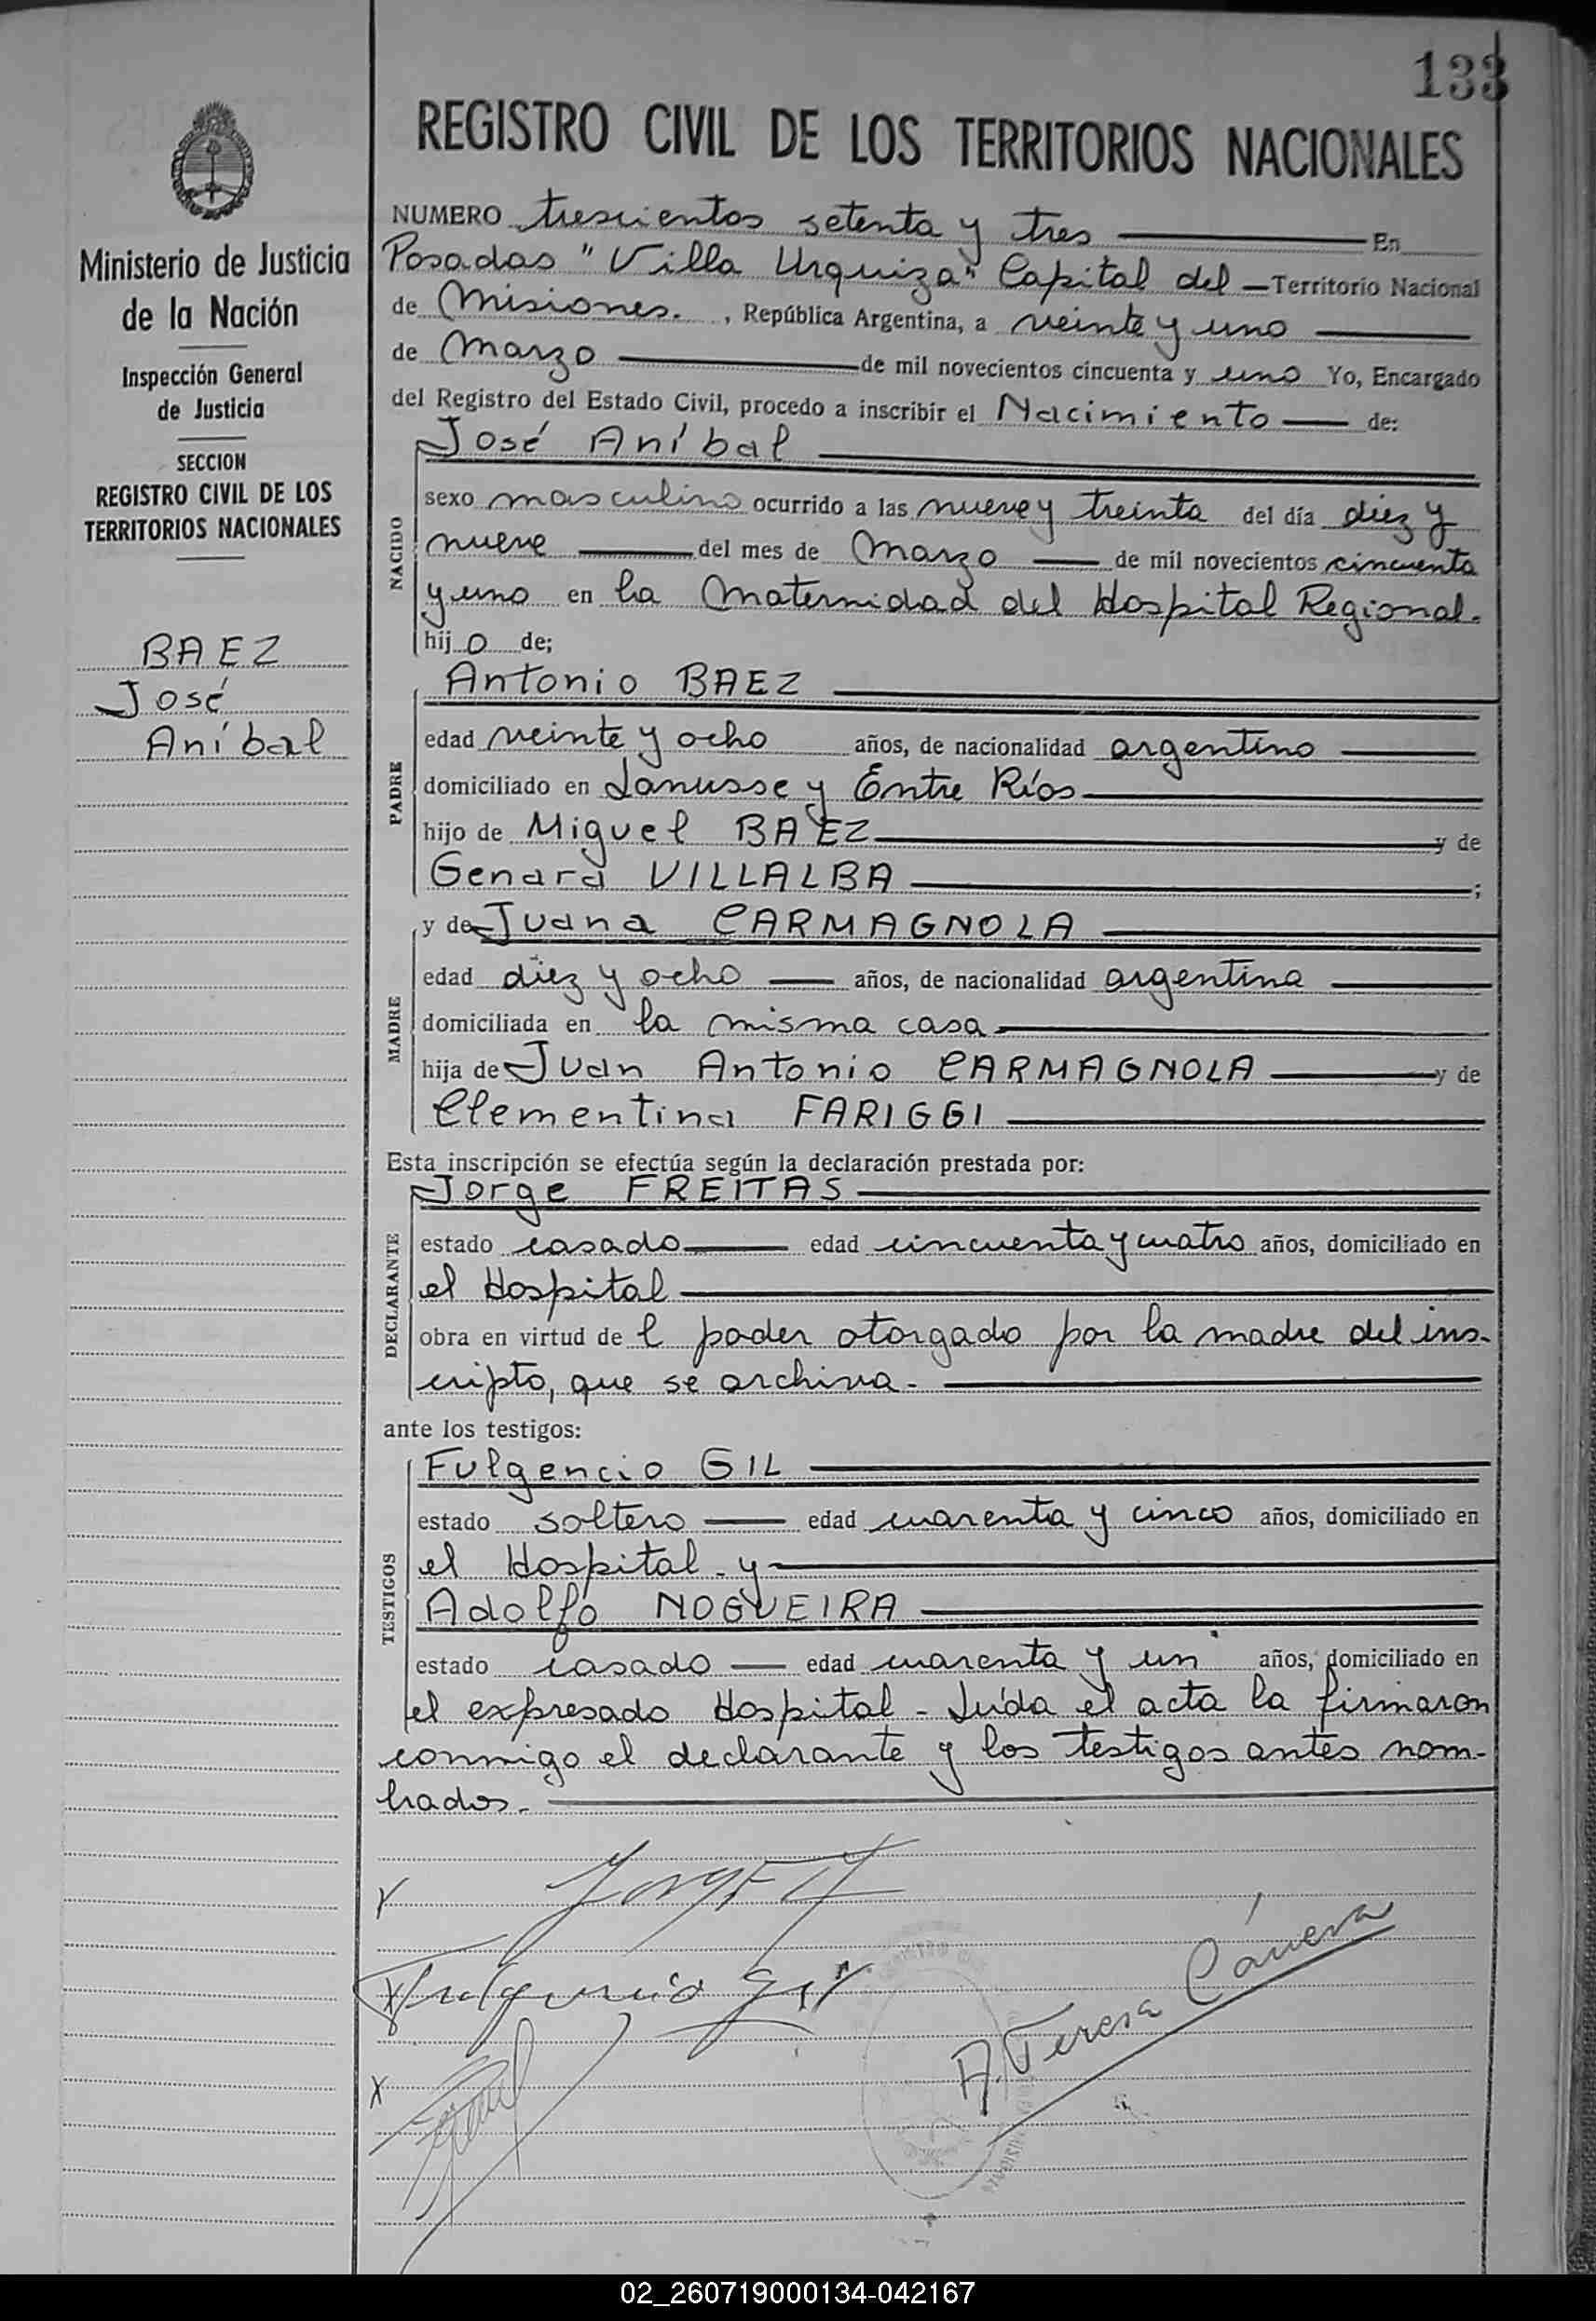 133
REGISTRO CIVIL DE LOS TERRITORIOS NACIONALES
Ministerio de Justicia
de la Nación
Inspección General
de Justicia
SECCION
REGISTRO CIVIL DE LOS
TERRITORIOS NACIONALES
BAEZ
José
Aníbal
NUMERO trescientos setenta y tres En
Posadas "Villa Urquiza" Capital del Territorio Nacional
de Misiones. , República Argentina, a veinte y uno
de Marzo de mil novecientos cincuenta y uno Yo, Encargado
del Registro del Estado Civil, procedo a inscribir el Nacimiento de:
José Aníbal
NACIDO
sexo masculino ocurrido a las nueve y treinta del día diez y
nueve del mes de Marzo de mil novecientos cincuenta
y uno en la Maternidad del Hospital Regional.
hijo de;
Antonio BAEZ
PADRE
edad veinte y ocho años, de nacionalidad argentino
domiciliado en Lanusse y Entre Ríos
hijo de Miguel BAEZ y de
Genara VILLALBA ;
y de Juana CARMAGNOLA
MADRE
edad diez y ocho años, de nacionalidad argentina
domiciliada en la misma casa
hija de Juan Antonio CARMAGNOLA y de
Clementina FARIGGI
Esta inscripción se efectúa según la declaración prestada por:
Jorge FREITAS
DECLARANTE
estado casado edad cincuenta y cuatro años, domiciliado en
el Hospital
obra en virtud del poder otorgado por la madre del ins-
cripto, que se archiva.-
ante los testigos:
Fulgencio GIL
TESTIGOS
estado soltero edad cuarenta y cinco años, domiciliado en
el Hospital - y
Adolfo NOGUEIRA
estado casado edad cuarenta y un años, domiciliado en
el expresado Hospital - Leída el acta la firmaron
conmigo el declarante y los testigos antes nom-
brados.-
Fulgencio Gil
A. Teresa Cánera
02_260719000134-042167